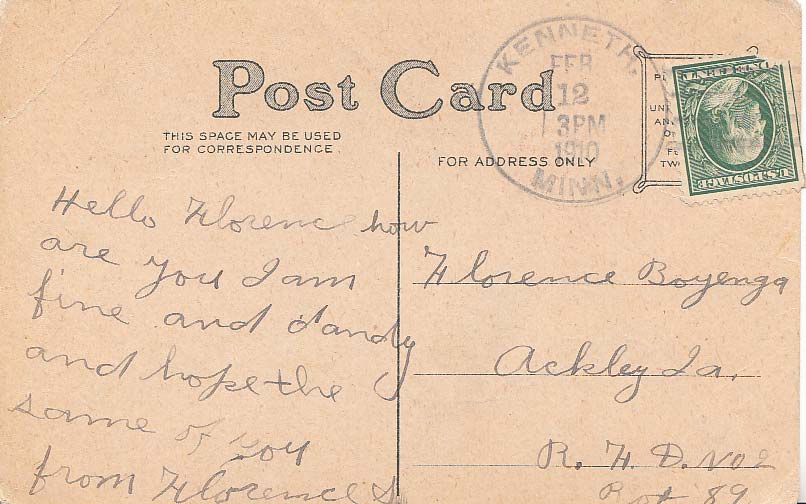 Post Card
THIS SPACE MAY BE USED
FOR CORRESPONDENCE.
FOR ADDRESS ONLY
KENNETH.
FEB
12
3PM
1910
MINN.
U.S. POSTAGE
Hello Florence how
are you I am
fine and dandy
and hope the
same of you
from Florence S
Florence Boyenga
Ackley Ia.
R. F. D. No 2
89